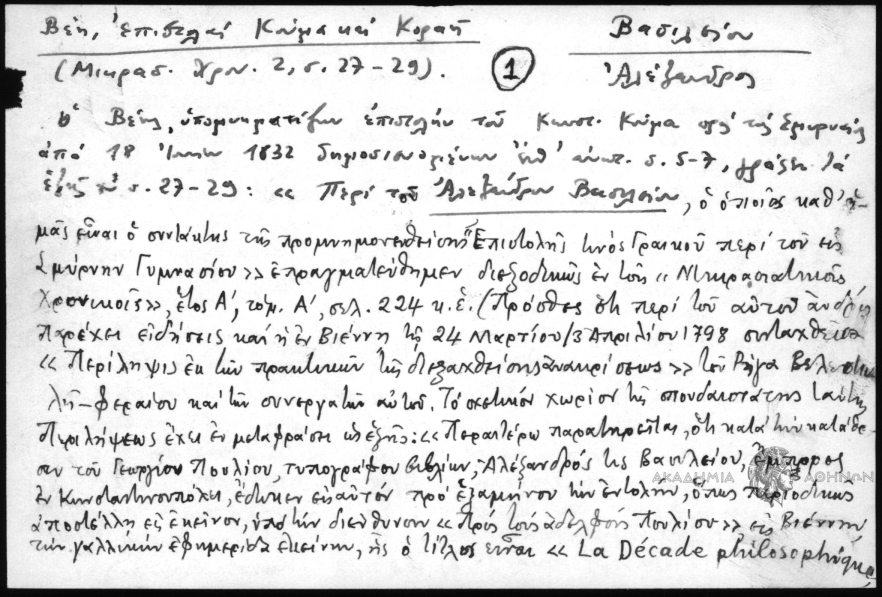 Βέη, Ἐπιστολαὶ Κούμα καὶ Κοραῆ Βασιλείου
(Μικρασ. Χρον. 2, σ. 27-29). 1 Ἀλέξανδρος
Ὁ Βέης, ὑπομνηματίζων ἐπιστολὴν τοῦ Κωνστ. Κούμα πρὸς τοὺς Σμυρναίους
ἀπὸ 18 Ἰουνίου 1832 δημοσιευομένην ἐνθ' ἀνωτ. σ. 5-7, γράφει τὰ
ἑξῆς ἐν σ. 27-29: « Περὶ τοῦ Ἀλεξάνδρου Βασιλείου, ὁ ὁποῖος καθ' ἡ-
μᾶς εἶναι ὁ συντάκτης τῆς προμνημονευθείσης "Ἐπιστολῆς ἑνὸς Γραικοῦ περὶ τοῦ εἰς
Σμύρνην Γυμνασίου» ἐπραγματεύθημεν διεξοδικῶς ἐν τοῖς « Μικρασιατικοῖς
Χρονικοῖς», ἔτος Α', τόμ. Α', σελ. 224 κ. ἑ. (Πρόσθες ὅτι περὶ τοῦ αὐτοῦ ἀνδρὸς
παρέχει εἰδήσεις καὶ ἡ ἐν Βιέννῃ τῇ 24 Μαρτίου/3 Ἀπριλίου 1798 συνταχθεῖσα
« Περίληψις ἐκ τῶν πρακτικῶν τῆς διεξαχθείσης ἀνακρίσεως » τοῦ Ρήγα Βελεστιν
λῆ-Φεραίου καὶ τῶν συνεργατῶν αὐτοῦ. Τὸ σχετικὸν χωρίον τῆς σπουδαιοτάτης ταύτης
Περιλήψεως ἔχει ἐν μεταφράσει ὡς ἑξῆς: « Περαιτέρω παρατηρεῖται, ὅτι κατὰ τὴν κατάθε-
σιν τοῦ Γεωργίου Πουλίου, τυπογράφου βιβλίων, Ἀλέξανδρός τις Βασιλείου, ἔμπορος
ἐν Κωνσταντινουπόλει, ἔδωκεν εἰς αὐτὸν πρὸ ἑξαμήνου τὴν ἐντολήν, ὅπως περιοδικῶς
ἀποστέλλῃ εἰς ἐκεῖνον, ὑπὸ τὴν διεύθυνσιν « Πρὸς τοὺς ἀδελφοὺς Πουλίου» εἰς Βιέννην,
τὴν γαλλικὴν ἐφημερίδα ἐκείνην, ἧς ὁ τίτλος εἶναι « La Décade philosophique,
ΑΚΑΔΗΜΙΑ ΑΘΗΝΩΝ